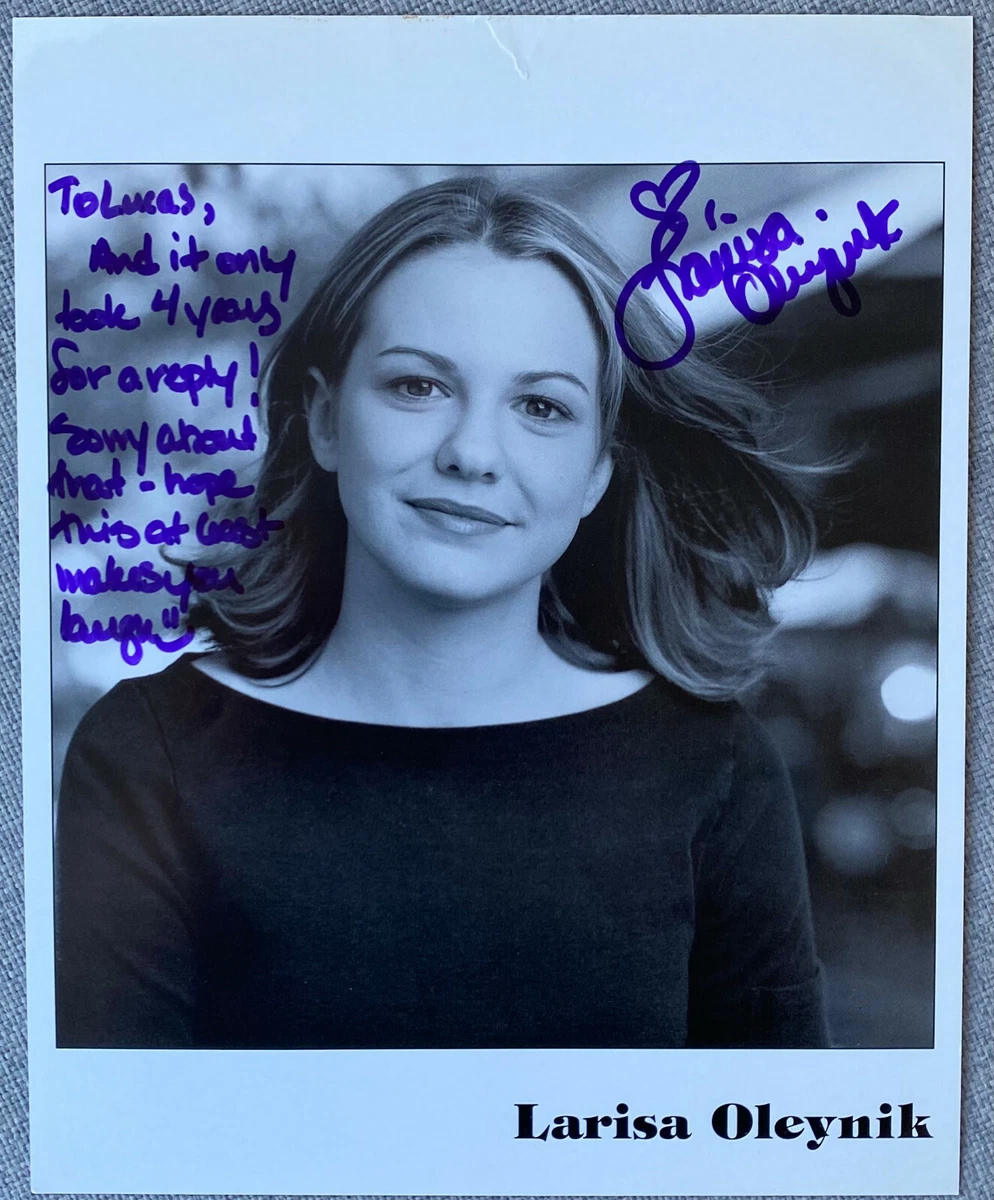 To Lucas,
And it only
took 4 years
for a reply!
Sorry about
that - hope
this at least
makes you
laugh"
Larisa
Oleynik
Larisa Oleynik